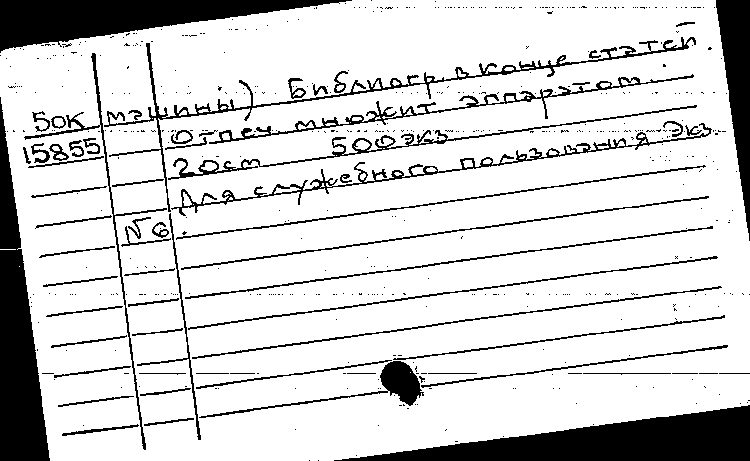 машины) Библиогр. в конце статей.
50к Отпеч. множит аппаратом.
15855 20см 500экз
Для служебного пользования Экз
№6.